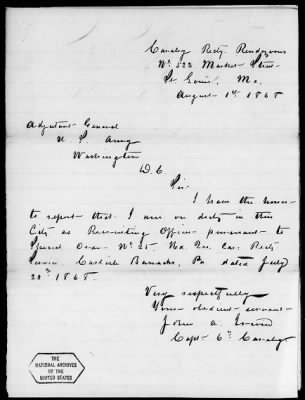 Cavalry Rectg. Rendezvous
No. 522 Market Street
St. Louis, Mo.
August 1st 1868
Adjutant General
U. S. Army
Washington
D.C.
Sir.
I have the honor
to report that I am on duty in this
City as Recruiting Officer pursuant to
Special Order No. 25 Hd. Qrs. Cav. Rectg
Service. Carlisle Barracks, Pa dated July
20th 1868.
Very respectfully
Your obedient servant
John A. Irwin
Capt. 6th Cavalry
THE
NATIONAL ARCHIVES
OF THE
UNITED STATES